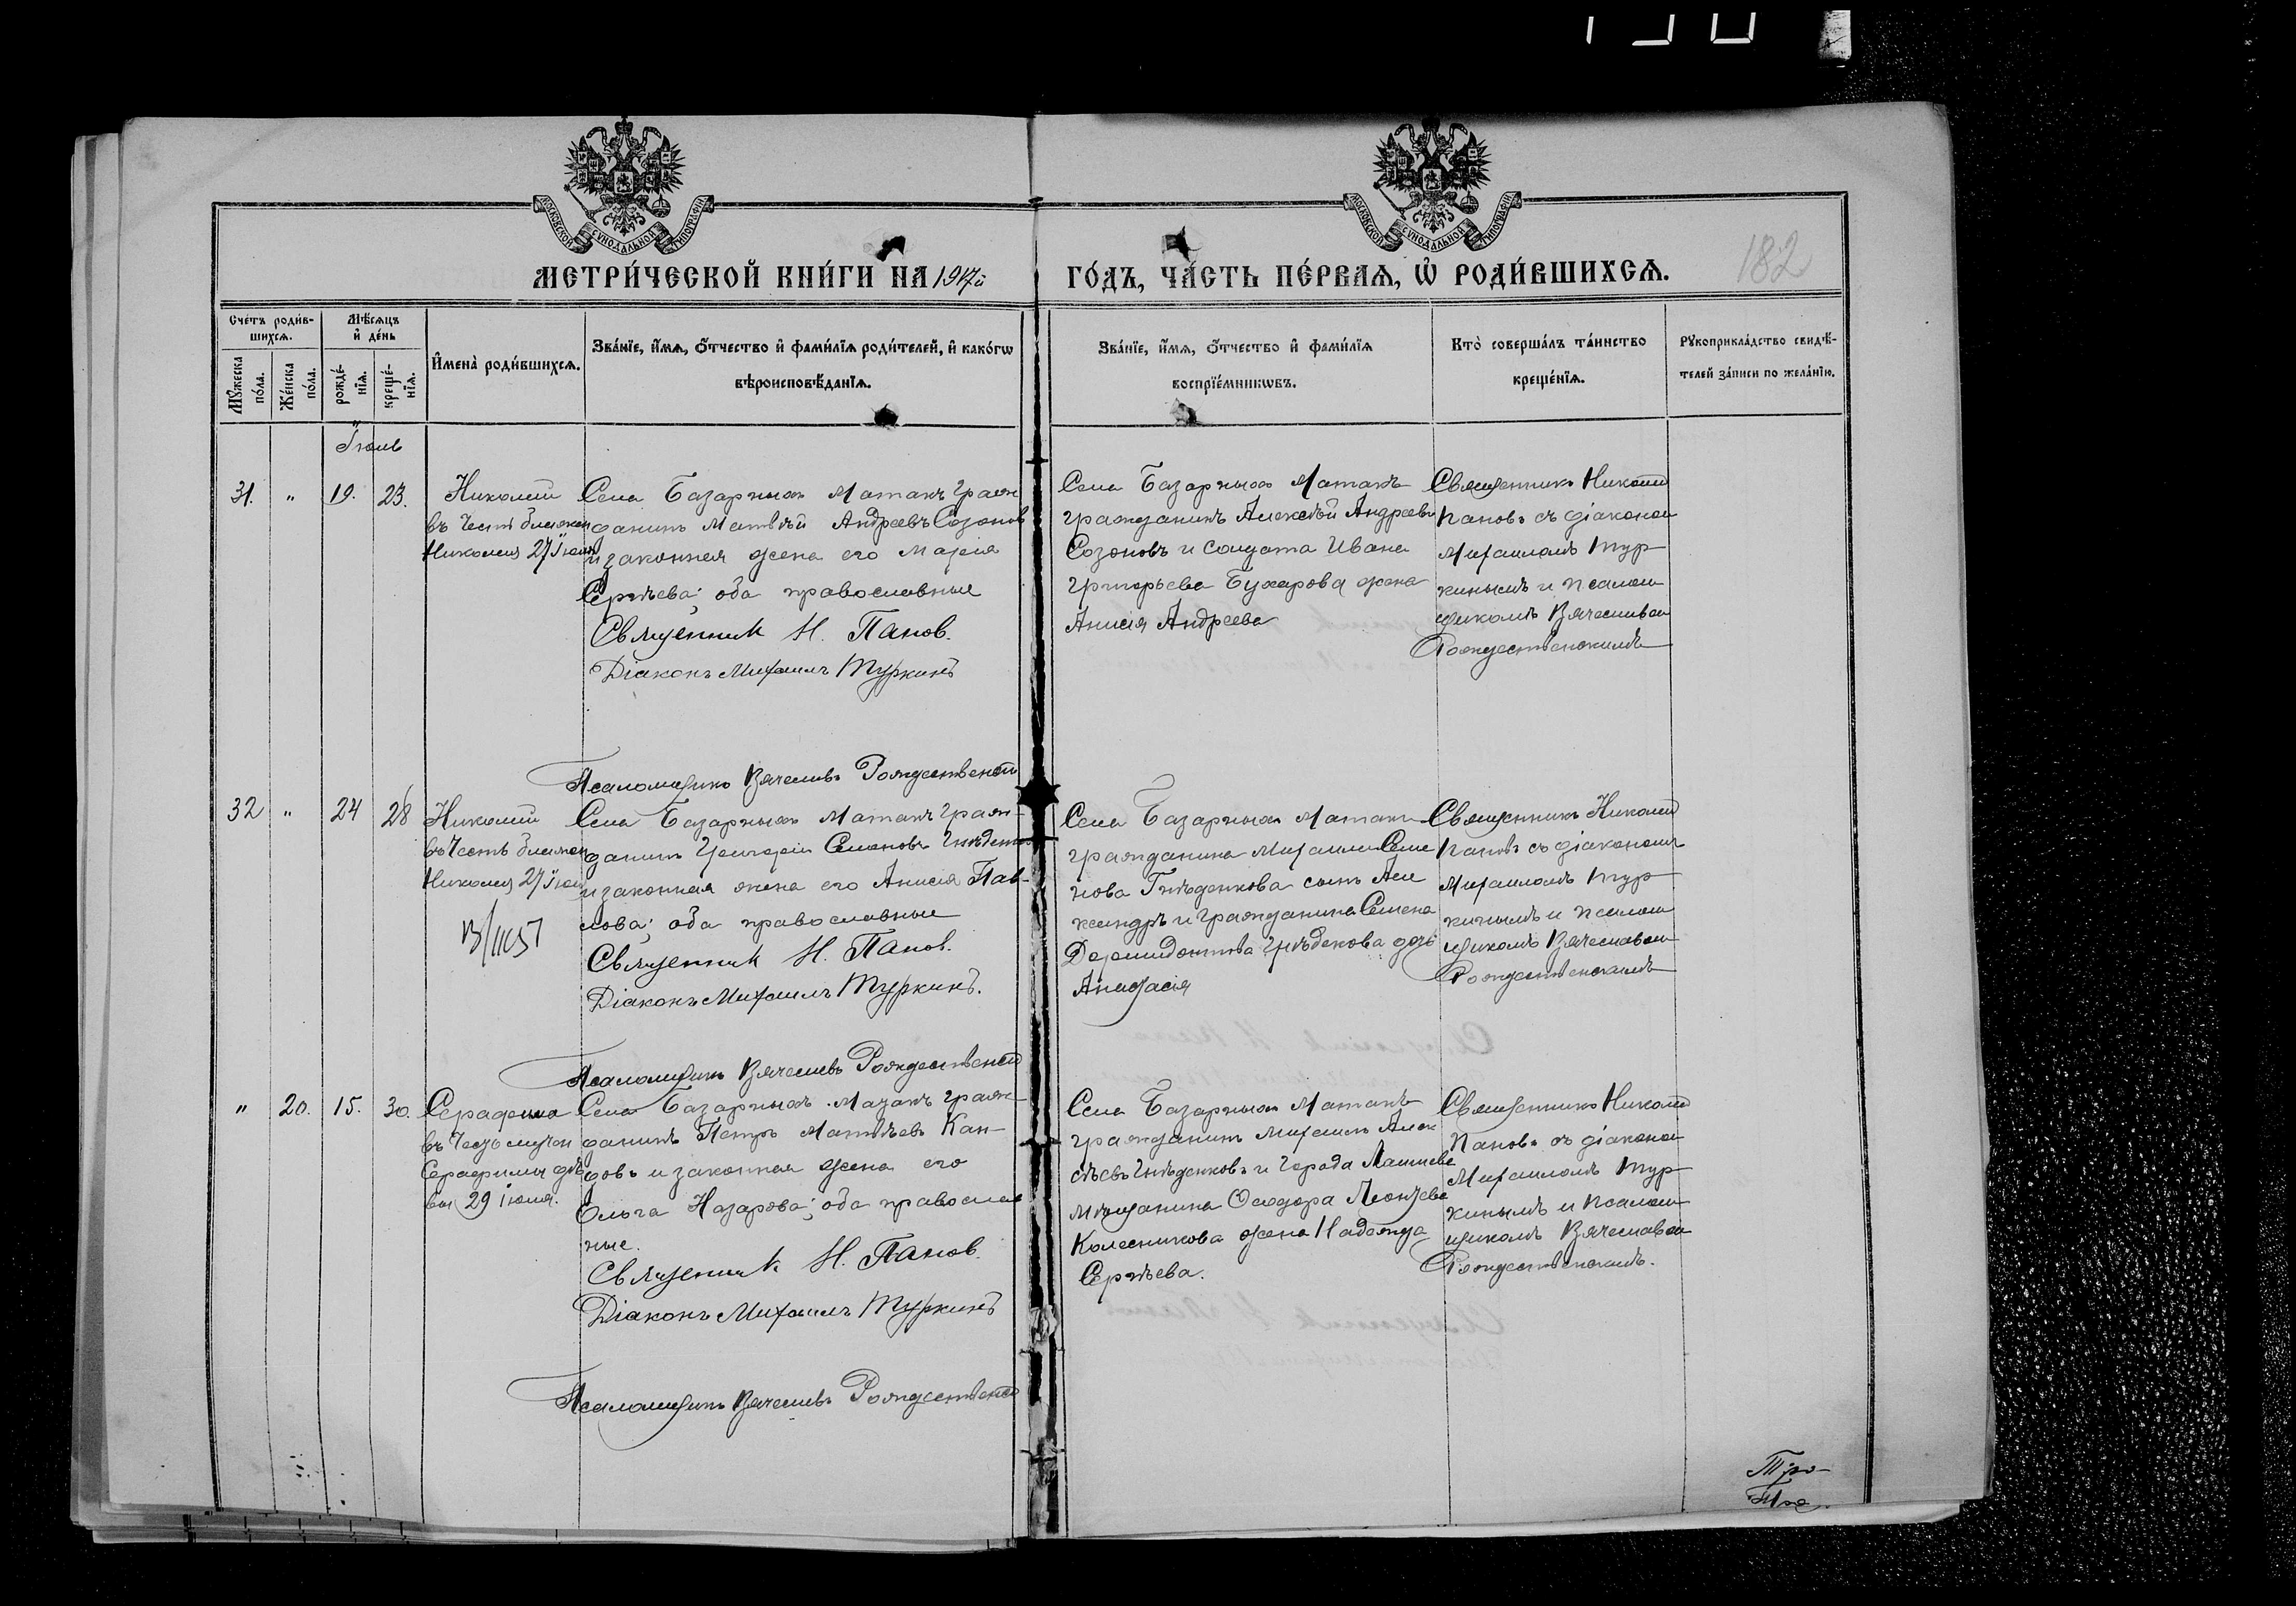 МОСКОВСКОЙ СѴНОДАЛЬНОЙ ТИПОГРАФІИ
МОСКОВСКОЙ СѴНОДАЛЬНОЙ ТИПОГРАФІИ
МЕТРИ́ЧЕСКОЙ КНИ́ГИ НА 1917й
ГО́ДЪ, ЧА́СТЬ ПЕ́РВАЯ, Ѡ҆ РОДИ́ВШИХСЯ.
182
Сче́тъ роди́в-
шихся.
Мѣ́сяцъ
и҆ де́нь
Мꙋ́жеска
по́ла.
Же́нска
по́ла.
рожде́-
нїя.
креще́-
нїя.
И҆мена̀ роди́вшихся.
Зва́нїе, и҆́мя, ѻ҆́тчество и҆ фами́лїя роди́телей, и҆ како́гѡ
вѣроисповѣ́данїя.
Зва́нїе, и҆́мя, ѻ҆́тчество и҆ фами́лїя
воспрїе́мникѡвъ.
Кто̀ соверша́лъ та́инство
креще́нїя.
Рꙋкоприкла́дство свидѣ́-
телей за́писи по жела́нїю.
Іюль
31. " 19. 23.
Николай
въ честь блажен
Николая 27 іюля
Села Базарныхъ Матакъ граж
данинъ Матвѣй Андреевъ Созонов
и законная жена его Марія
Сергѣева; оба православные
Священник Н. Панов.
Діаконъ Михаилъ Туркинъ
Псаломщикъ Вячеславъ Рождественскій
Села Базарныхъ Матакъ
гражданинъ Алексѣй Андреевъ
Созоновъ и солдата Ивана
Григорьева Бухарова жена
Анисія Андреева
Священникъ Николай
Пановъ съ діакономъ
Михаиломъ Тур
кинымъ и псалом
щикомъ Вячеславом
Рождественскимъ
32 " 24 28
Николай
въ честь блажен
Николая 27 іюля
Села Базарныхъ Матакъ граж-
данинъ Григорій Семеновъ Гнѣденков
и законная жена его Анисія Пав-
лова; оба православные
Священник Н. Панов.
Діаконъ Михаилъ Туркинъ.
Псаломщикъ Вячеславъ Рождественскій
Села Базарныхъ Матакъ
гражданина Михаила Семе
нова Гнѣденкова сынъ Але
ксандръ и гражданина Семена
Дормидонтова Гнѣденкова дочь
Анастасія
Священникъ Николай
Пановъ съ діакономъ
Михаиломъ Тур
кинымъ и псалом
щикомъ Вячеславом
Рождественскимъ
" 20. 15. 30.
Серафима
въ честь мучен
Серафимы дѣ
вы 29 іюля.
Села Базарныхъ Матакъ граж-
данинъ Петръ Матвѣевъ Кан-
ровъ и законная жена его
Ольга Назарова; оба православ
ные.
Священник Н. Панов.
Діаконъ Михаилъ Туркинъ
Псаломщикъ Вячеславъ Рождественскій
Села Базарныхъ Матакъ
гражданинъ Михаилъ Алек
сѣевъ Гнѣденковъ и города Лаишева
мѣщанина Ѳеодора Леонтьева
Колесникова жена Надежда
Сергѣева.
Священникъ Николай
Пановъ съ діакономъ
Михаиломъ Тур
кинымъ и псалом
щикомъ Вячеславом
Рождественскимъ.